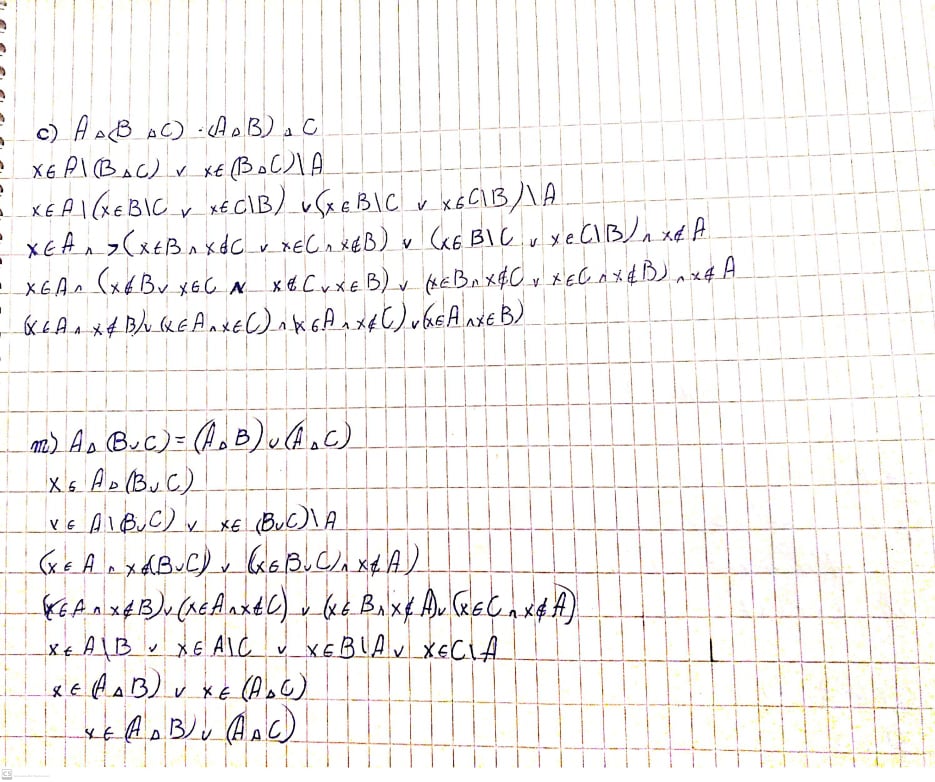 c) A △ (B △ C) = (A △ B) △ C
x ∈ A \ (B △ C) ∨ x ∈ (B △ C) \ A
x ∈ A \ (x ∈ B \ C ∨ x ∈ C \ B) ∨ (x ∈ B \ C ∨ x ∈ C \ B) \ A
x ∈ A ∧ ¬(x ∈ B ∧ x ∉ C ∨ x ∈ C ∧ x ∉ B) ∨ (x ∈ B \ C ∨ x ∈ C \ B) ∧ x ∉ A
x ∈ A ∧ (x ∉ B ∨ x ∈ C ∧ x ∉ C ∨ x ∈ B) ∨ (x ∈ B ∧ x ∉ C ∨ x ∈ C ∧ x ∉ B) ∧ x ∉ A
(x ∈ A ∧ x ∉ B) ∨ (x ∈ A ∧ x ∈ C) ∧ (x ∈ A ∧ x ∉ C) ∨ (x ∈ A ∧ x ∈ B)
m) A △ (B ∪ C) = (A △ B) ∪ (A △ C)
x ∈ A △ (B ∪ C)
x ∈ A \ (B ∪ C) ∨ x ∈ (B ∪ C) \ A
(x ∈ A ∧ x ∉ (B ∪ C)) ∨ (x ∈ B ∪ C) ∧ x ∉ A)
(x ∈ A ∧ x ∉ B) ∨ (x ∈ A ∧ x ∉ C) ∨ (x ∈ B ∧ x ∉ A) ∨ (x ∈ C ∧ x ∉ A)
x ∈ A \ B ∨ x ∈ A \ C ∨ x ∈ B \ A ∨ x ∈ C \ A
x ∈ (A △ B) ∨ x ∈ (A △ C)
x ∈ (A △ B) ∪ (A △ C)
CS